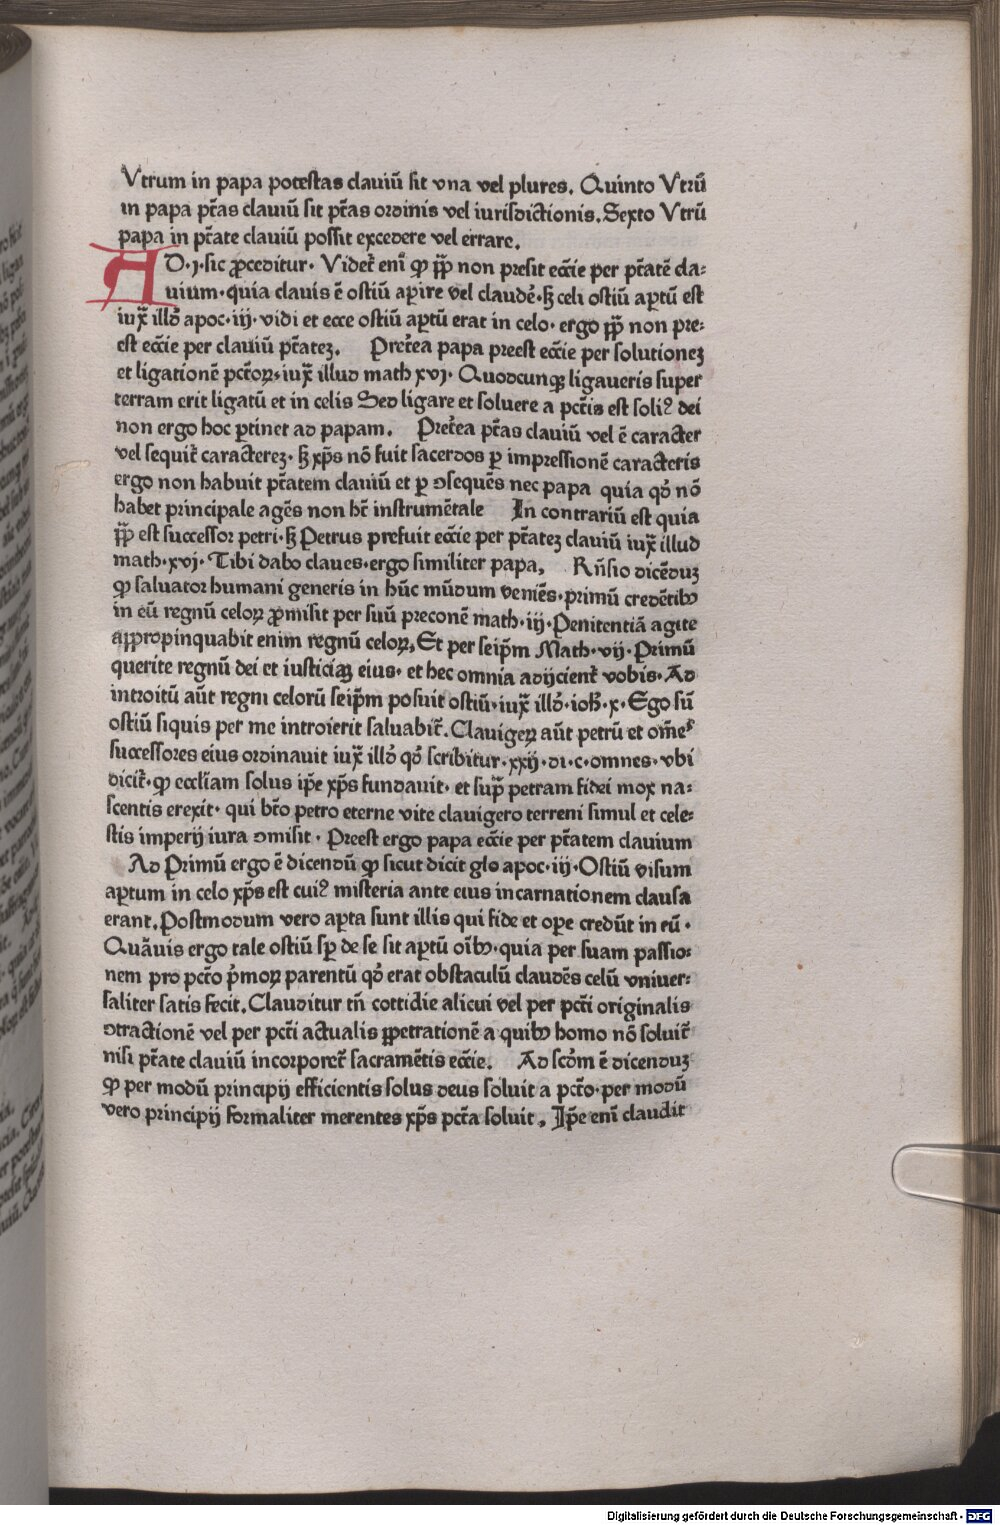 Vtrum in papa potestas clauiū sit vna vel plures. Quinto Vtrū
in papa ptãs clauiū sit ptãs ordinis vel iurisdictionis. Sexto Vtrū
papa in ptãte clauiū possit excedere vel errare.
AD .j. sic ꝓceditur. Videt̃ eni̅ ꝙ pp̃ non presit ecc̃ie per ptãtē cla⸗
uium. quia clauis ē ostiū apire vel claudé. sꝫ celi ostiū aptū est
iux̃ illd̓ apoc. iij. vidi et ecce ostiū aptū erat in celo. ergo pp̃ non pre⸗
est ecc̃ie per clauiū ptãtez. Pret̃ea papa preest ecc̃ie per solutionez
et ligationē pct̃oꝝ. iux̃ illud math xvj. Quodcunqꝫ ligaueris super
terram erit ligatū et in celis Sed ligare et soluere a pct̃is est soliꝰ dei
non ergo hoc ꝑtinet ad papam. Pret̃ea ptãs clauiū vel ē caracter
vel sequit̃ caracterez. sꝫ xp̃s nō fuit sacerdos ꝑ impressionē caracteris
ergo non habuit ptãtem clauiū et ꝑ ꝯsequēs nec papa quia qd̓ nō
habet principale agēs non hꝫ instrumētale In contrariū est quia
pp̃ est successor petri. sꝫ Petrus prefuit ecc̃ie per ptãtez clauiū iux̃ illud
math. xvj. Tibi dabo claues. ergo similiter papa. Rñsio dicēduz
ꝙ saluator humani generis in hūc mūdum veniēs. primū credētibꝫ
in eū regnū celoꝝ ꝓmisit per suū preconē math. iij. Penitentiā agite
appropinquabit enim regnū celoꝝ. Et per seip̃m Math. vij. Primū
querite regnū dei et iusticiaꝫ eius. et hec omnia adijcient̃ vobis. Ad
introitū aūt regni celorū seip̃m posuit ostiū. iux̃ illd̓. ioh̃. x. Ego sū
ostiū siquis per me introierit saluabit̃. Clauigeꝝ aūt petrū et om̃es
successores eius ordinauit iux̃ illd̓ qd̓ scribitur. xxij. di. c. omnes. vbi
dicit̃. ꝙ eccl̃iam solus ip̃e xp̃s fundauit. et sup̃ petram fidei mox na⸗
scentis erexit. qui bt̃o petro eterne vite clauigero terreni simul et cele⸗
stis imperij iura ꝯmisit. Preest ergo papa ecc̃ie per ptãtem clauium
Ad Primū ergo ē dicendū ꝙ sicut dicit glo apoc. iij. Ostiū visum
aptum in celo xp̃s est cuiꝰ misteria ante eius incarnationem clausa
erant. Postmodum vero apta sunt illis qui fide et ope credūt in eū.
Quāuis ergo tale ostiū sp̃ de se sit aptū oĩbꝫ. quia per suam passio⸗
nem pro pct̃o p̃moꝝ parentū qd̓ erat obstaculū claudēs celū vniuer⸗
saliter satis fecit. Clauditur tñ cottidie alicui vel per pct̃i originalis
ꝯtractionē vel per pct̃i actualis ꝑpetrationē a quibꝫ homo nō soluit̃
nisi ptãte clauiū incorporet̃ sacramētis ecc̃ie. Ad scd̓m ē dicenduꝫ
ꝙ per modū principij efficientis solus deus soluit a pct̃o. per modū
vero principij formaliter merentes xp̃s pct̃a soluit. Ip̃e eni̅ claudit
Digitalisierung gefördert durch die Deutsche Forschungsgemeinschaft - DFG